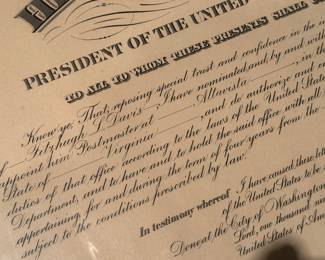 PRESIDENT OF THE UNITED
TO ALL TO WHOM THESE PRESENTS SHALL
Know ye, That, reposing special trust and confidence in the
of Fitzhugh L. Davis I have nominated, and, by and with
appoint him Postmaster at Altavista, in the
State of Virginia, and do authorize and
duties of that office according to the laws of the United States
Department, and to have and to hold the said office, with all
appertaining, for and during the term of four years from the
subject to the conditions prescribed by law.
In testimony whereof I have caused these
of the United States to be
Done at the City of Washington
Lord, one thousand
United States of